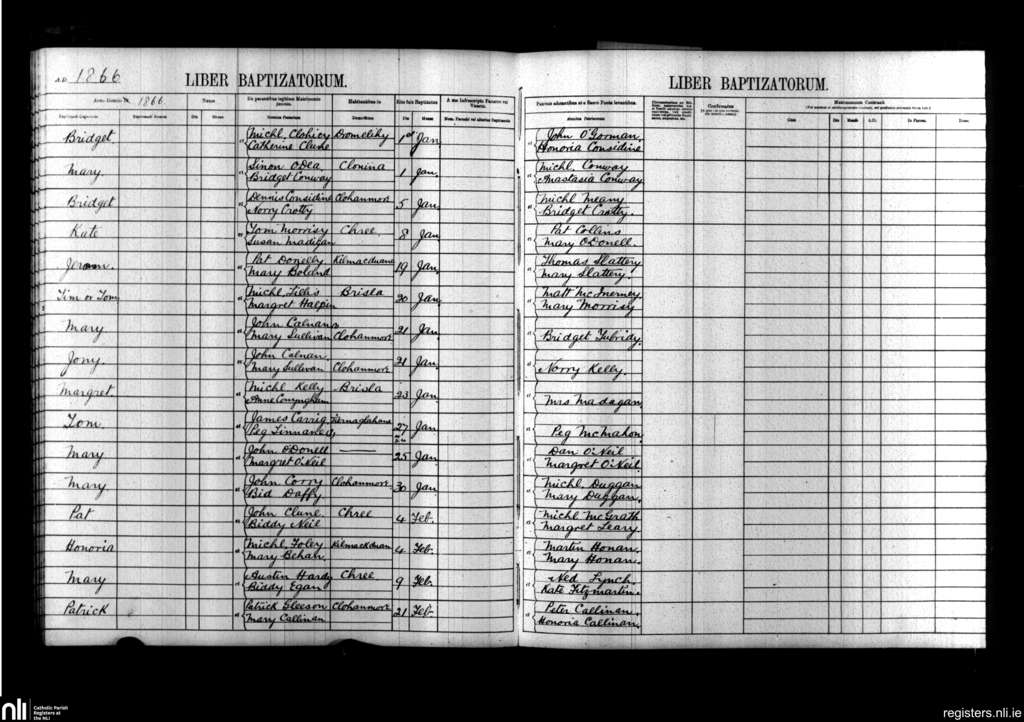 A.D. 1866
LIBER BAPTIZATORUM.
LIBER BAPTIZATORUM.
Anno Domini 1866.
Confirmatus
Matrimonium Contraxit
Die Mense
Bridget Michl. Clohicy Domelihy 1st Jan John O'Gorman,
Catherine Clune Honoria Considine
Mary. Sinon O'Dea Clonina 1 Jan. Michl. Conway
Bridget Conway Anastasia Conway
Bridget Dennis Considine Clohanmore 5 Jan. Michl Meany
Norry Crotty Bridget Crotty.
Kate Tom Morrisy Chree, 8 Jan Pat Collens
Susan Madigan Mary O'Donell.
Jerom. Pat Donelly Kilmacduane 19 Jan, Thomas Slattery
Mary Boland Mary Slattery.
Tim or Tom Michl. Lillis Brisla 20 Jan. Matt McInerney
Margret Halpin Mary Morrisy
Mary John Calnan 21 Jan,
Mary Sullivan Clohanmore Bridget Tubridy.
Jony. John Calnan. 21 Jan.
Mary Sullivan Clohanmore Norry Kelly.
Margret. Michl Kelly Brisla 23 Jan.
Anne Conyngham Mrs Madagan
Tom. James Carrig 27 Jan.
Peg Peg McMahon
Mary John O'Donell 25 Jan. Dan O'Neil
Margret O'Neil Margret O'Neil.
Mary John Corry Clohanmore 30 Jan. Michl. Duggan
Bid Daffy Mary Duggan,
Pat John Clune Chree 4 Feb. Michl McGrath
Biddy Neil Margret Leary
Honoria Michl. Foley Kilmackduan 4 Feb. Martin Honan
Mary Behan, Mary Honan.
Mary Austin Hardy Chree 9 Feb Ned Lynch.
Biddy Egan Kate Fitzmartin.
Patrick Patrick Gleeson Clohanmore 21 Feb. Peter Callinan.
Mary Callinan Honoria Callinan.
nli Catholic Parish
Registers at
the NLI
registers.nli.ie